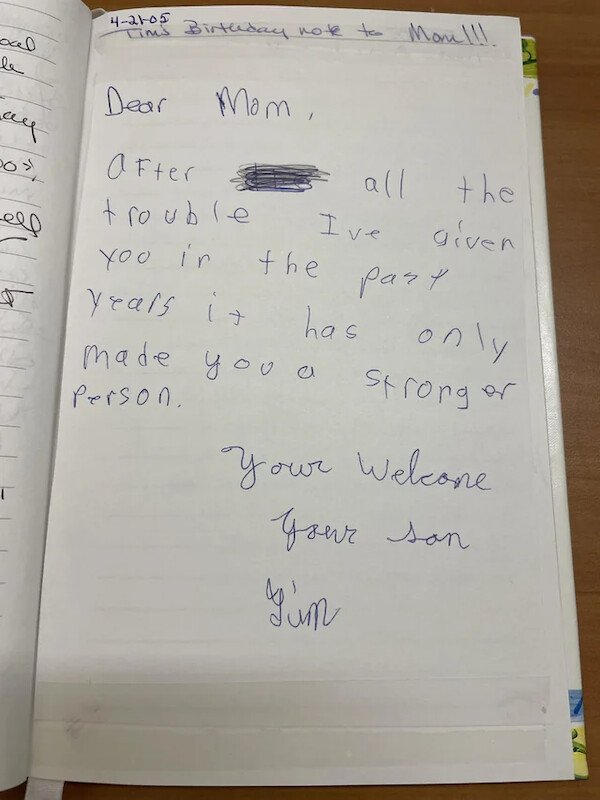 oal
ay
ell
4-21-05
Tim's Birthday note to Mom!!!
Dear Mom,
After all the
trouble I've given
you in the past
years it has only
made you a stronger
person.
Your Welcome
Your son
Tim